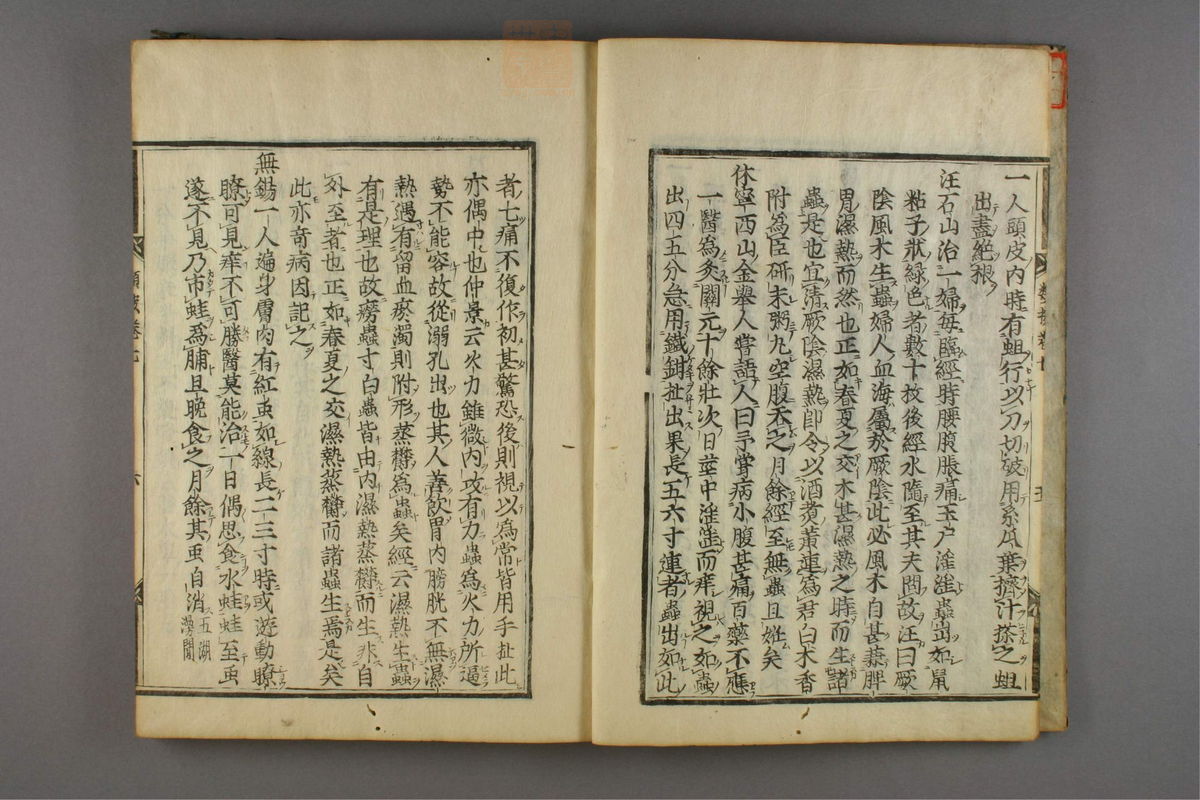 一人頭皮内時有蛆行以刀切破用糸瓜葉擠汁搽之蛆
出盡絶根
汪石山治一婦毎臨經時腰腹脹痛玉戸淫淫蟲出如鼠
粘子狀綠色者數十枚後經水隨至其夫問故汪曰厥
陰風木生蟲婦人血海屬於厥陰此必風木自甚兼脾
胃濕熱而然也正如春夏之交木甚濕熱之時而生諸
蟲是也宜清厥陰濕熱即令以酒煮黄連爲君白木香
附爲臣研末粥丸空腹呑之月餘經至無蟲且姙矣
休寧西山金舉人嘗語人曰予嘗病小腹甚痛百藥不應
一醫爲灸關元十餘壯次日莖中淫淫而痒視之如蟲
出四五分急用鐵鉗扯出果長五六寸連者蟲出如此
者七痛不復作初甚驚恐後則視以爲常皆用手扯此
亦偶中也仲景云火力雖微内攻有力蟲爲火力所逼
勢不能容故從溺孔出也其人善飲胃内膀胱不無濕
熱遇有留血瘀濁則附形蒸欝為蟲矣經云濕熱生蟲
有是理也故癆蟲寸白蟲皆由内濕熱蒸欝而生非自
外至者也正如春夏之交濕熱蒸欝而諸蟲生焉是矣
此亦奇病因記之
無錫一人遍身膚肉有紅虫如線長二三寸時或遊動瞭
瞭可見痒不可勝醫莫能治一日偶思食水蛙蛙至虫
遂不見乃市蛙爲脯旦晩食之月餘其虫自消 五湖漫聞